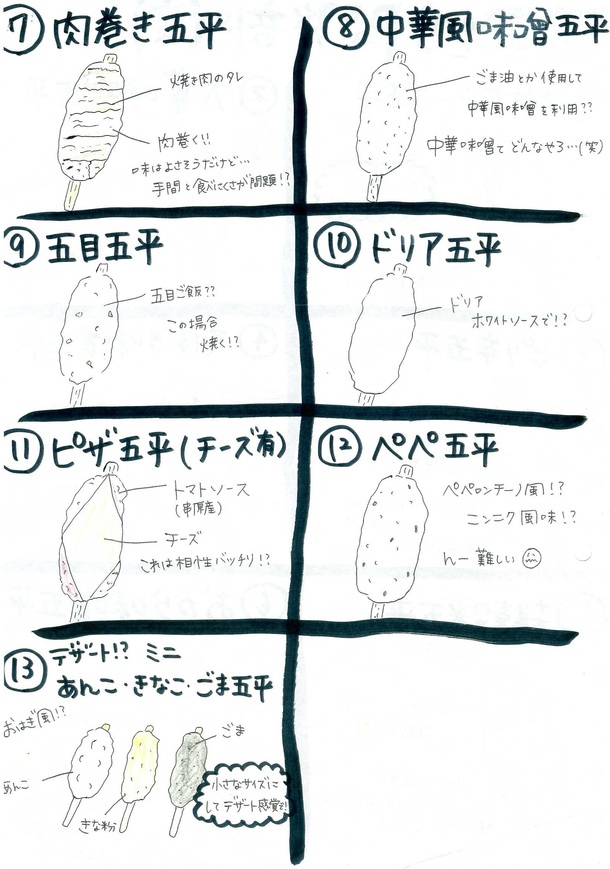 ⑦ 肉巻き五平
焼き肉のタレ
肉巻く!!
味はよさそうだけど…
手間と食べにくさが問題!?
⑧ 中華風味噌五平
ごま油とか使用して
中華風味噌を利用??
中華味噌てどんなやろ…(笑)
⑨ 五目五平
五目ご飯??
この場合
焼く!?
⑩ ドリア五平
ドリア
ホワイトソースで!?
⑪ ピザ五平(チーズ有)
トマトソース
(串原産)
チーズ
これは相性バッチリ!?
⑫ ペペ五平
ペペロンチーノ風!?
ニンニク風味!?
んー難しい
⑬ デザート!? ミニ
あんこ・きなこ・ごま五平
おはぎ風!?
ごま
あんこ
きな粉
小さなサイズに
してデザート感覚で!